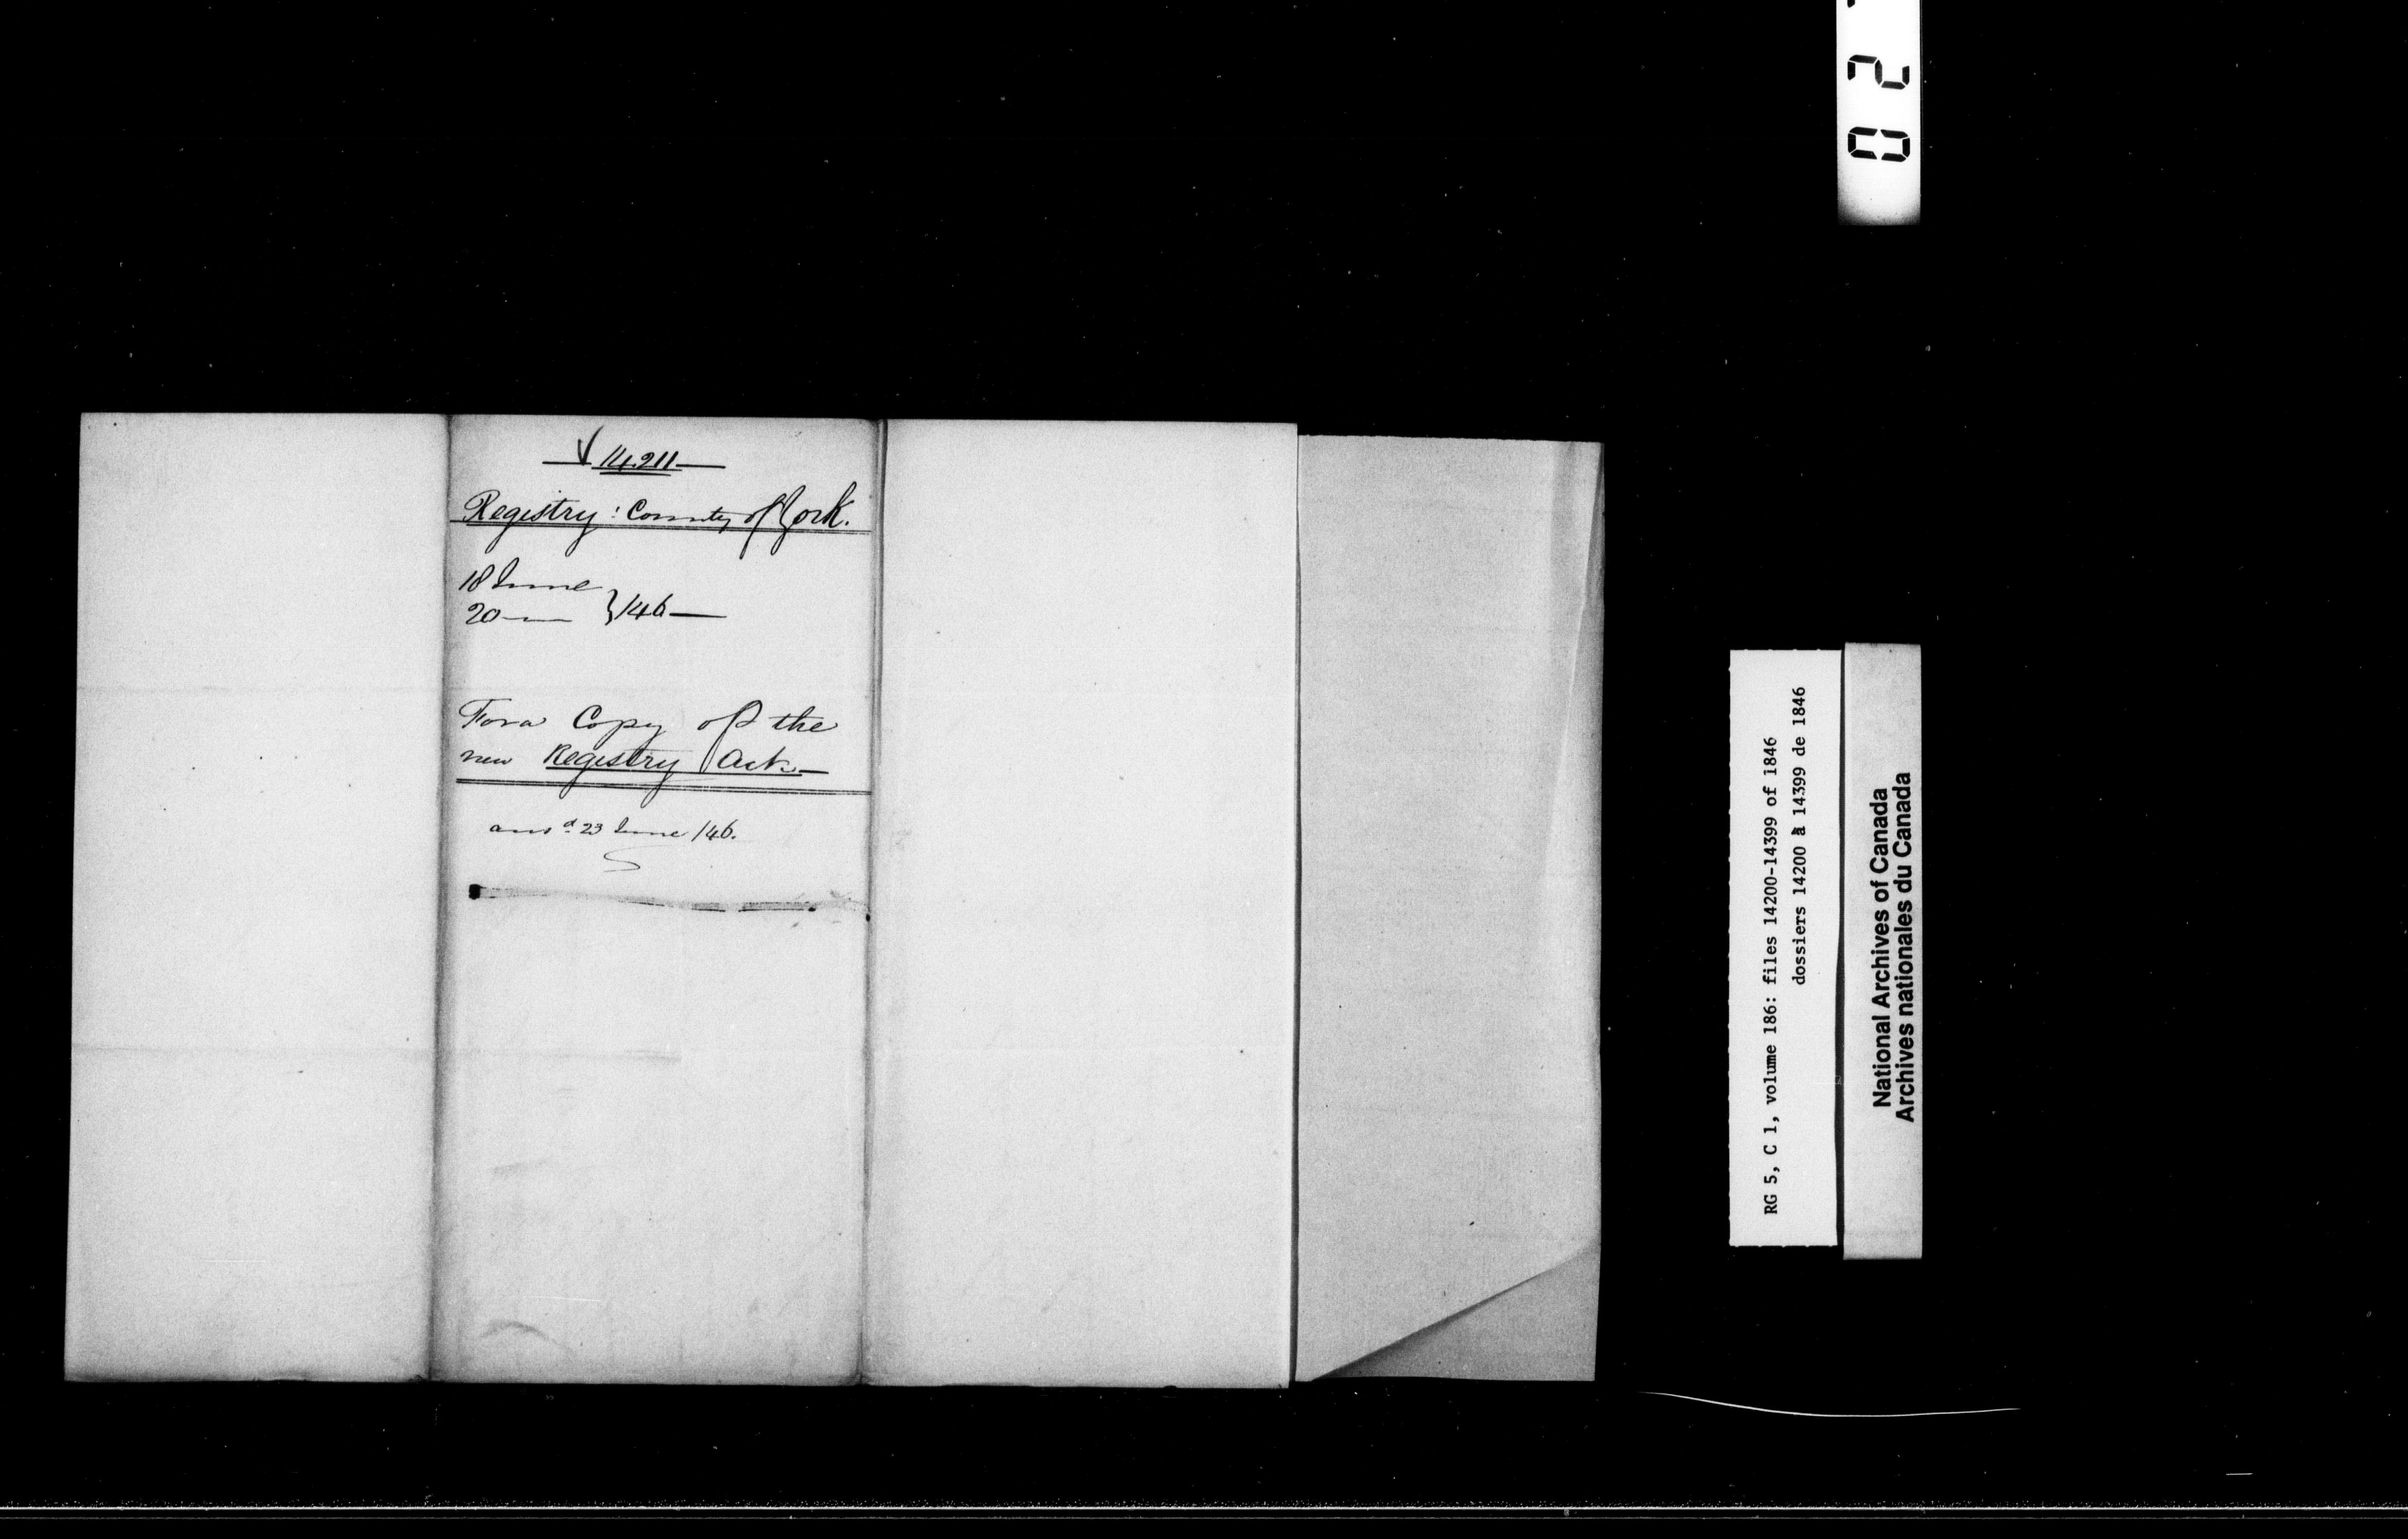 14.211
Registry: County of York.
18 June
20 — } /46 —
For a Copy of the
new Registry Act —
ansd 23 June /46.
RG 5, C 1, volume 186: files 14200-14399 of 1846
dossiers 14200 à 14399 de 1846
National Archives of Canada
Archives nationales du Canada
02